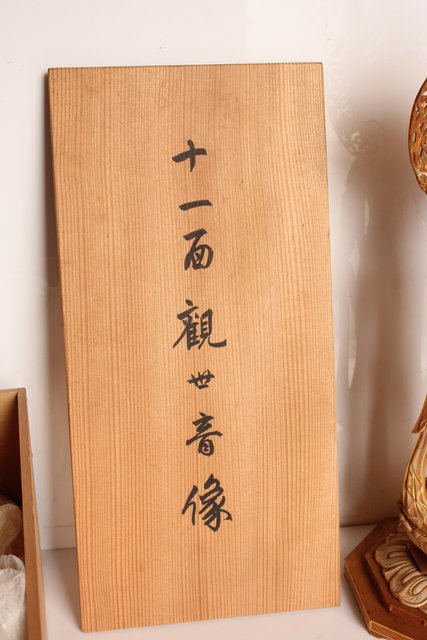 十一面觀世音像